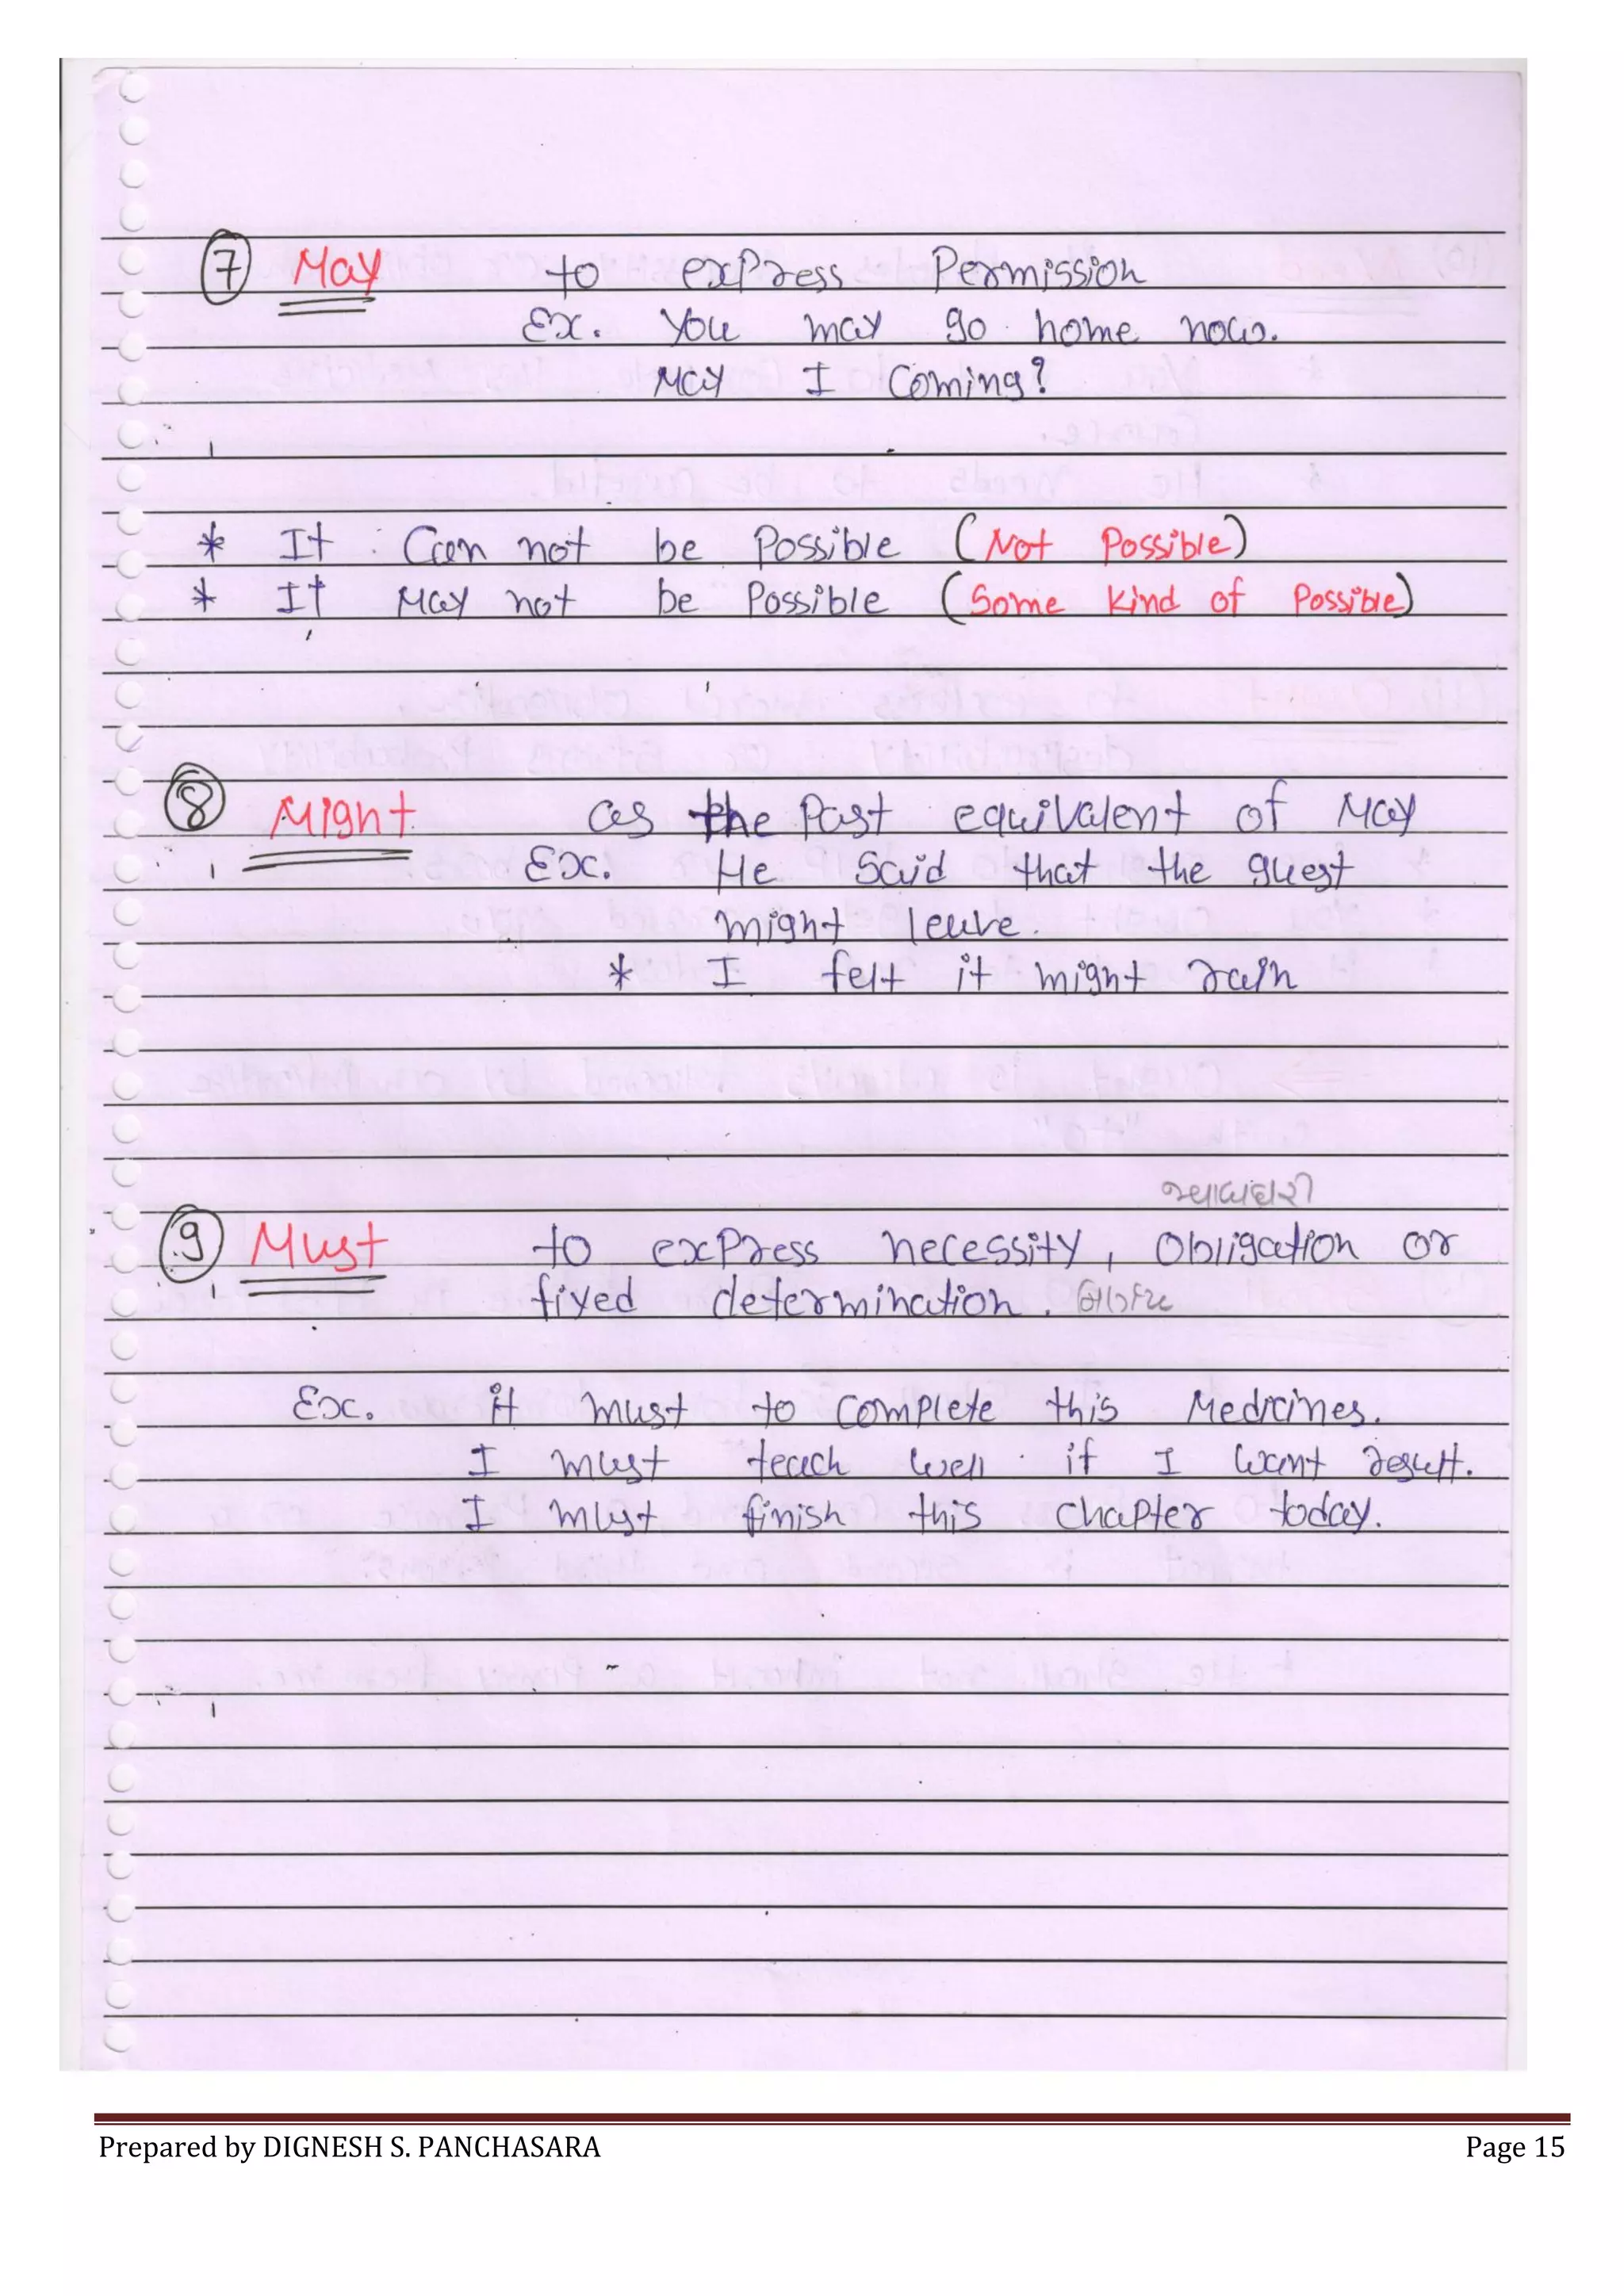 7 May to express Permission
Ex. You may go home now.
May I Coming?
* It Can not be Possible (Not Possible)
* It May not be Possible (Some Kind of Possible)
8 Might as the Past equivalent of May
Ex. He Said that the guest
might leave.
* I felt it might rain
9 Must to express necessity, Obligation or
fixed determination.
Ex. it must to Complete this Medicines.
I must teach well if I want result.
I must finish this Chapter today.
Prepared by DIGNESH S. PANCHASARA Page 15